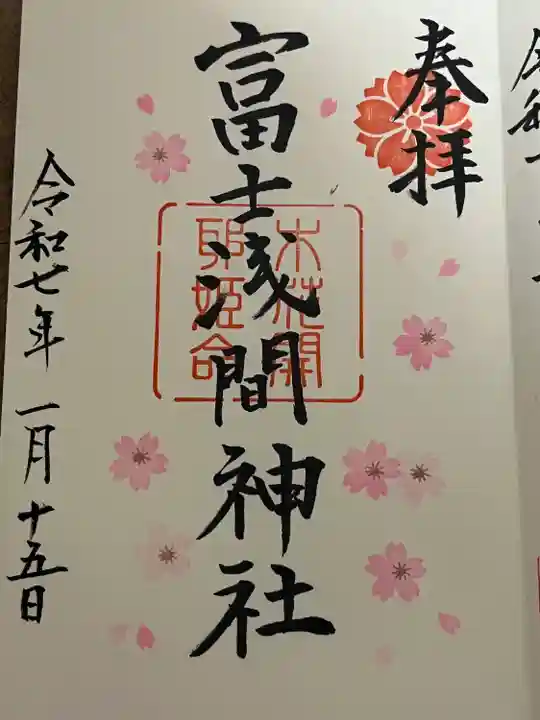 奉拝
富士浅間神社
木花開
耶姫命
令和七年 一月 十五日